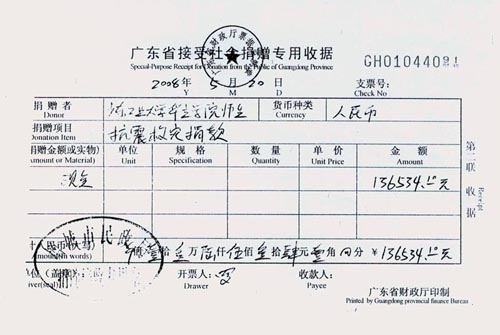 广东省接受社会捐赠专用收据
Special-Purpose Receipt for Donation from the Public of Guangdong Province
GH010440
2008年 5月 20日
Y M D
支票号:
Check No
捐赠者
Donor
大学华立学院师生
货币种类
Currency
人民币
捐赠项目
Donation Item
抗震救灾捐款
捐赠金额(或实物)
Amount or Material)
单位
Unit
规格
Specification
数量
Quantity
单价
Unit Price
金额
Amount
现金
136534.10元
第二联 收据
Receipt
城市民政
壹拾叁万陆仟伍佰叁拾肆元壹角 分 ¥136534.10元
in words)
单位(盖
开票人:
Drawer
收款人:
Payee
广东省财政厅印制
Printed by Guangdong provincial finance Bureau